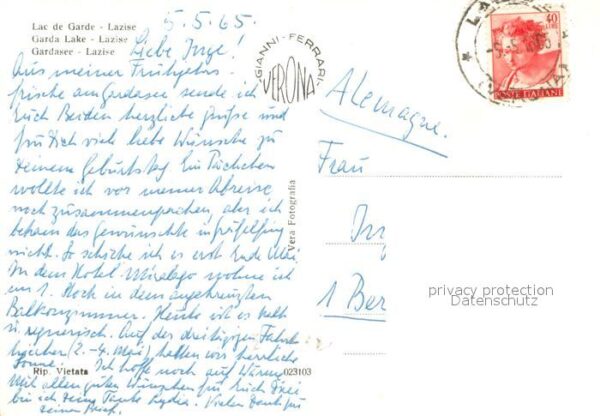 Lac de Garde - Lazise
Garda Lake - Lazise
Gardasee - Lazise
5.5.65.
Liebe Inge!
Aus meiner Frühjahrs-
frische am Gardasee sende ich
Euch Beiden herzliche Grüße und
für Dich viele liebe Wünsche zu
Deinem Geburtstag. Ein Päckchen
wollte ich vor meiner Abreise
noch zusammenpacken, aber ich
bekam das Gewünschte
nicht. So schicke ich es erst Ende Mai.
In dem Hotel Miralago wohne ich
im 1. Stock in dem angekreuzten
Balkonzimmer. Heute ist es kalt
u. regnerisch. Auf der dreitägigen Fahrt
hierher (2.-4. Mai) hatten wir herrliche
Sonne. Ich hoffe noch auf Wärme.
Mit allen guten Wünschen für Euch
bin ich Deine Tante Lydia. Vielen Dank für
Deinen Brief.
Rip. Vietata
023103
GIANNI - FERRARI
VERONA
Vera Fotografia
40
POSTE ITALIANE
Alemagne.
Frau
In
1 Ber
privacy protection
Datenschutz